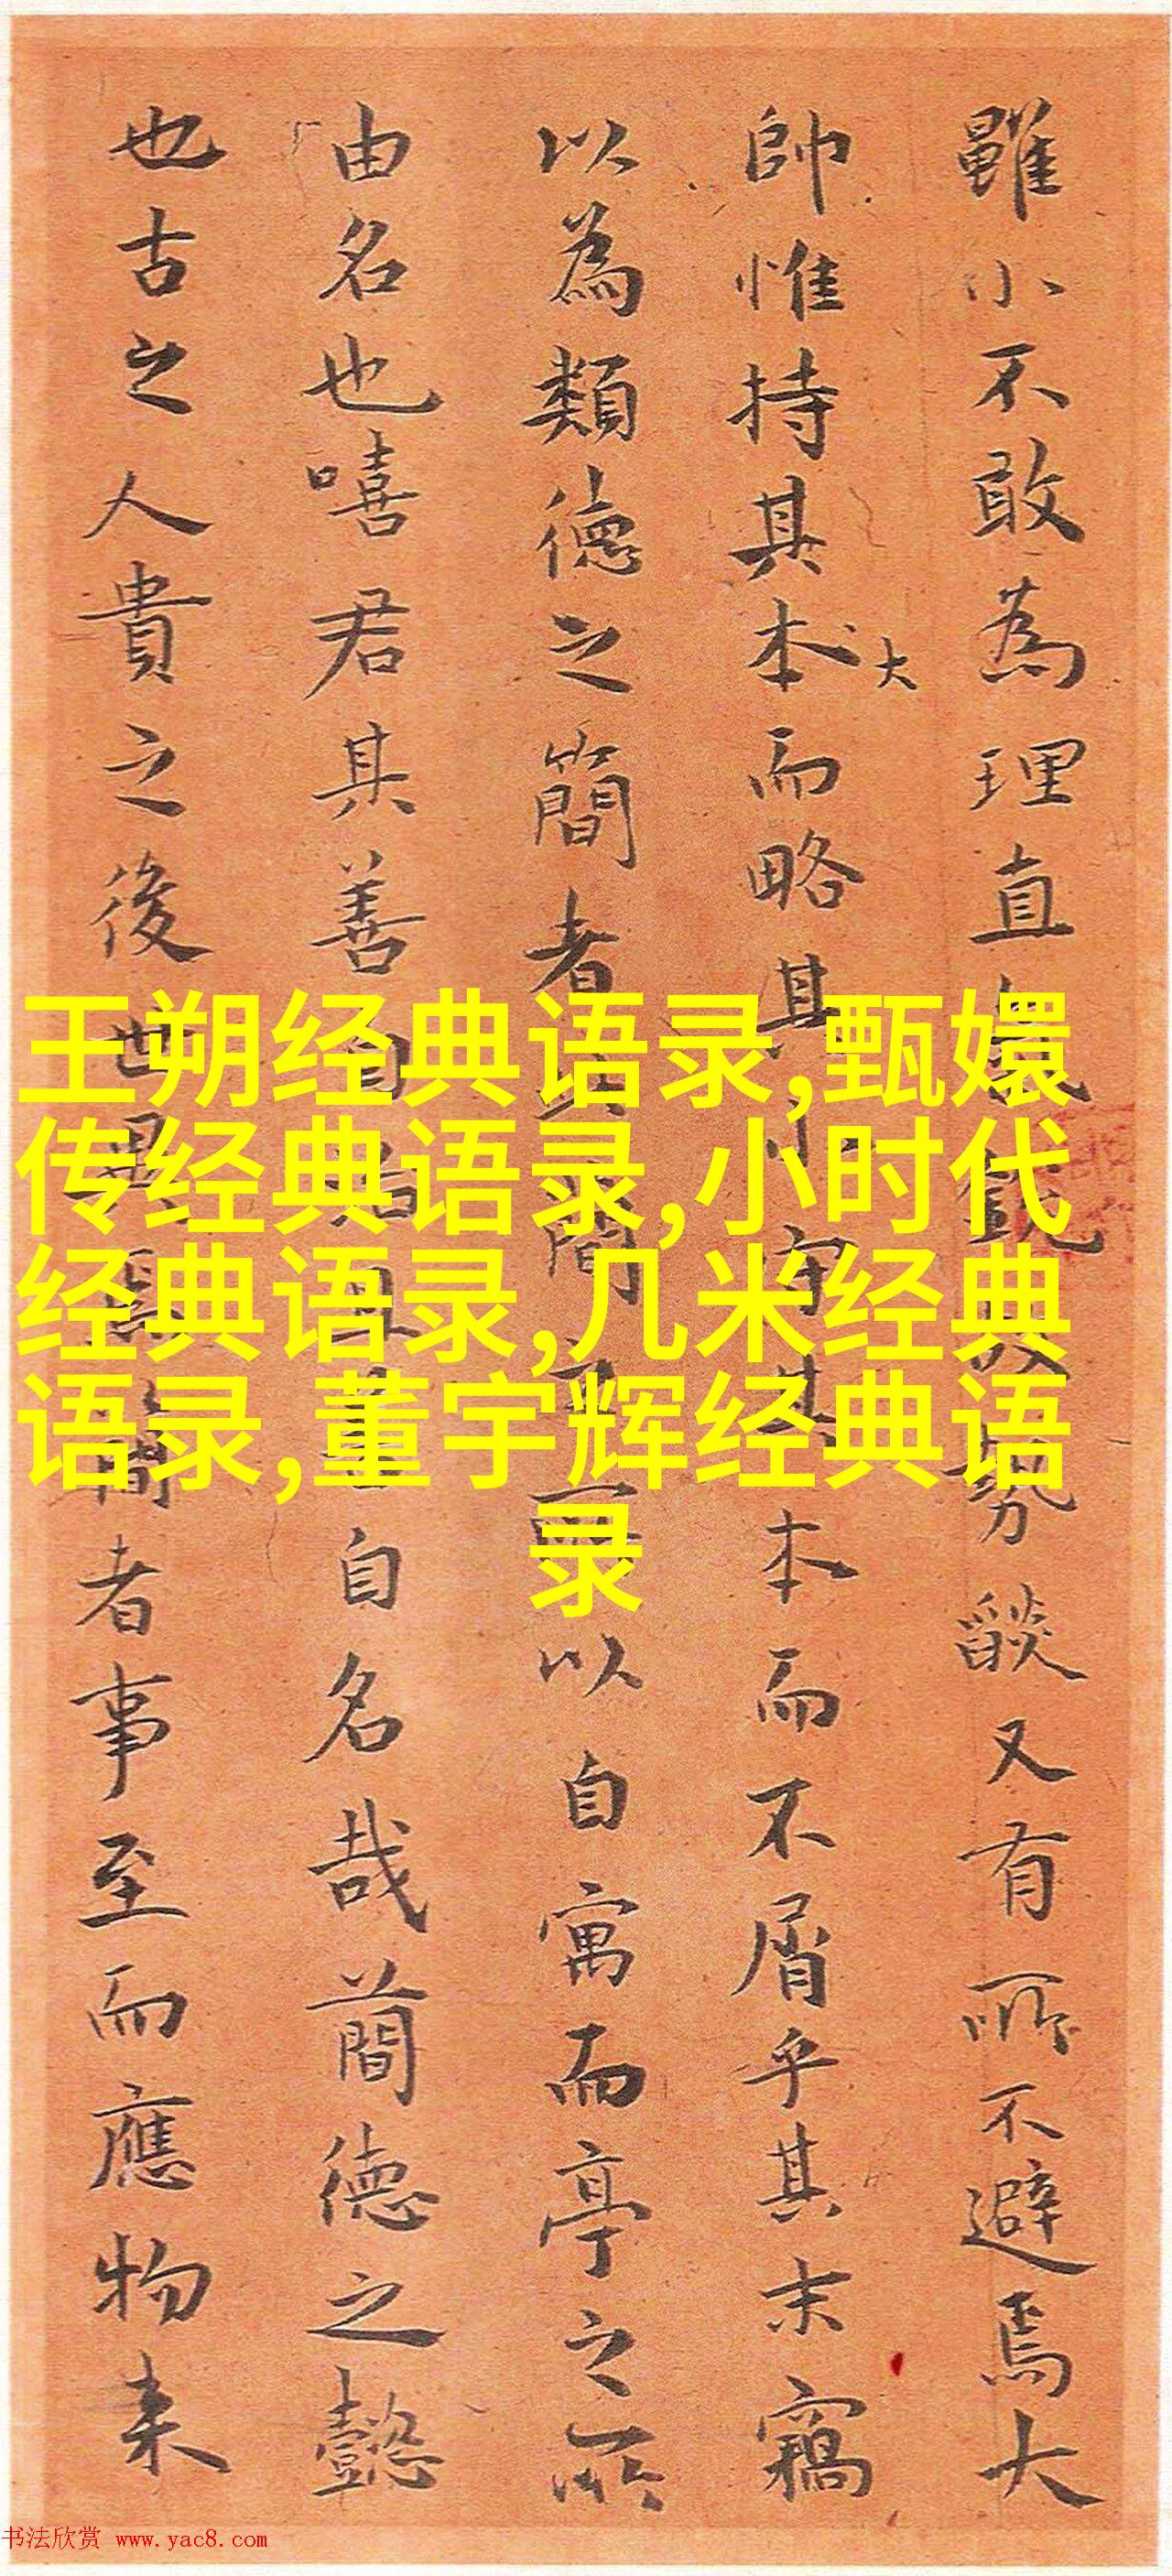 雖小不敢為理直勢燄又有所不避焉大
帥惟持其本大而略其小守其本而不屑乎其末竊
以為類德之簡者簡以自寓而亭之所
由名也嘻君其善自自名哉簡德之懿
也古之人貴之後世簡者事至而應物来
王朔经典语录,甄嬛
传经典语录,小时代
经典语录,几米经典
语录,董宇辉经典语
录
书法欣赏 www.yac8.com